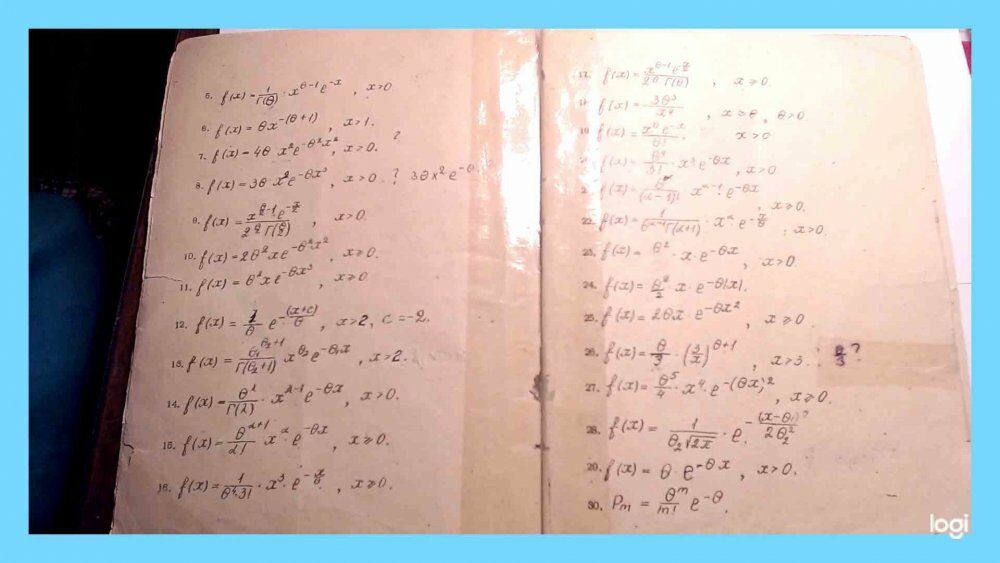 5. f(x) = 1/Γ(θ) · x^(θ-1) e^(-x), x>0.
6. f(x) = θx^(-(θ+1)), x>1.
7. f(x) = 4θ x² e^(-θ²x²), x>0. ?
8. f(x) = 3θ x² e^(-θx³), x>0. ? 3θx² e^(-θ
9. f(x) = x^(θ/2-1) e^(-x/2) / 2^(θ/2) Γ(θ/2), x>0.
10. f(x) = 2θ² x e^(-θ²x²), x⩾0.
11. f(x) = θ² x e^(-θx³), x⩾0
12. f(x) = 1/θ e^(-(x+c)/θ), x>2, c=-2.
13. f(x) = θ₁^(θ₂+1)/Γ(θ₂+1) x^(θ₂) e^(-θ₁x), x>2.
14. f(x) = θ^λ/Γ(λ) · x^(λ-1) e^(-θx), x>0.
15. f(x) = θ^(α+1)/α! x^α · e^(-θx), x⩾0.
16. f(x) = 1/(θ⁴·3!) · x³ · e^(-x/θ), x⩾0.
f(x) = x^(θ-1) e^(x/2) / 2^θ Γ(θ), x⩾0.
f(x) = 3θ³/x⁴, x⩾θ, θ>0
f(x) = x^θ e^(-x)/θ!, x>0
f(x) = θ⁴/3! · x³ e^(-θx), x>0.
f(x) = /(α-1)! x^(α-1) e^(-θx), x⩾0.
22. f(x) = 1/(θ^(α+1) Γ(α+1)) · x^α · e^(-x/θ), x>0.
23. f(x) = θ² · x · e^(-θx), x>0.
24. f(x) = θ²/2 · x · e^(-θ|x|).
25. f(x) = 2θx · e^(-θx²), x⩾0
26. f(x) = θ/3 · (3/x)^(θ+1), x>3. θ/3 ?
27. f(x) = θ⁵/4 · x⁴ · e^(-(θx)²), x⩾0.
28. f(x) = 1/(θ₂√2x) · e^(-(x-θ₁)²/2θ₂²)
29. f(x) = θ · e^(-θx), x>0.
30. Pm = θ^m/m! e^(-θ).
logi